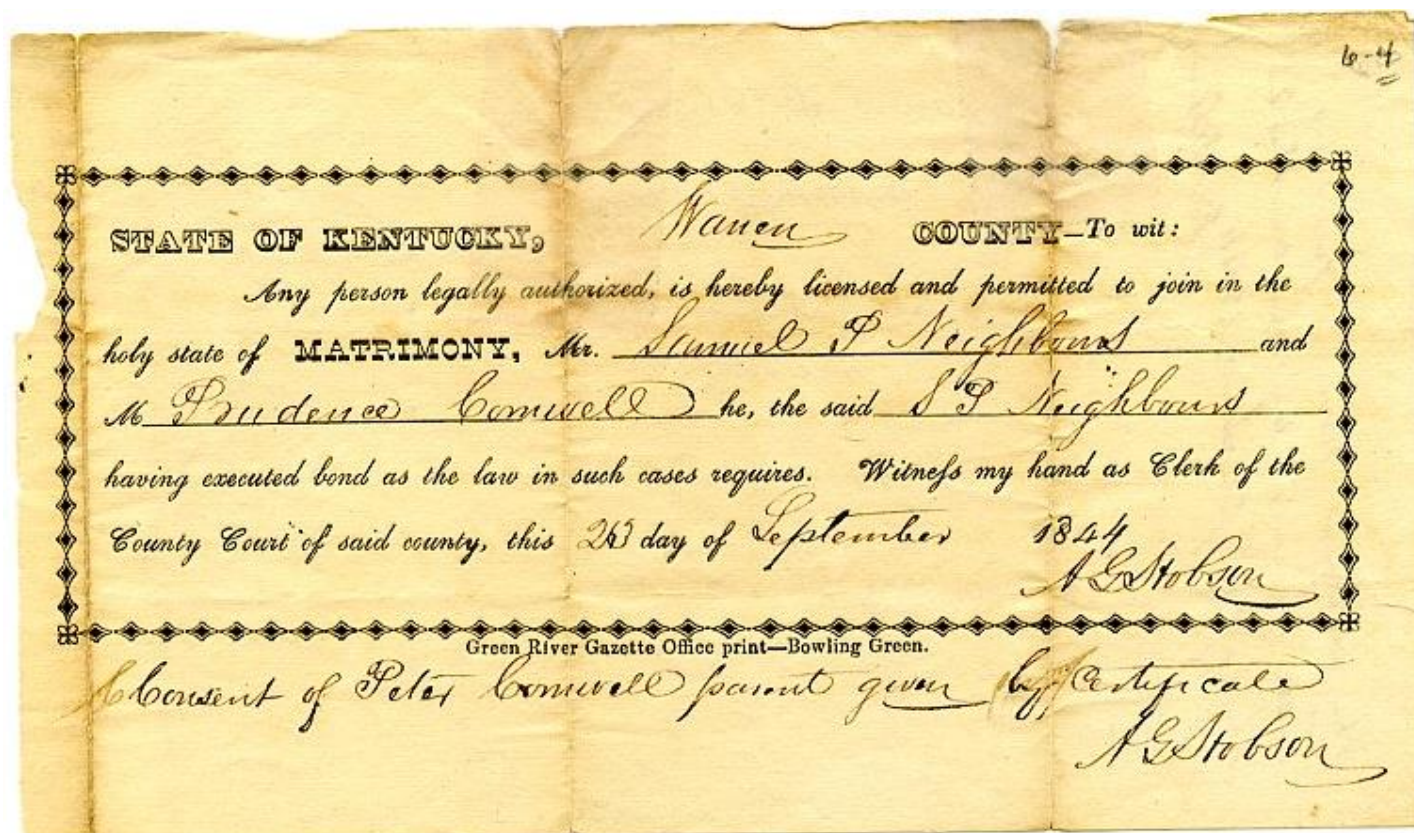 6-4
STATE OF KENTUCKY, Warren COUNTY—To wit:
Any person legally authorized, is hereby licensed and permitted to join in the
holy state of MATRIMONY, Mr. Samuel P Neighbours and
M Prudence Cornwell he, the said S P Neighbours
having executed bond as the law in such cases requires. Witneſs my hand as Clerk of the
County Court of said county, this 23 day of September 1844
A G Hobson
Green River Gazette Office print—Bowling Green.
Consent of Peter Cornwell parent given by Certificate
A G Hobson